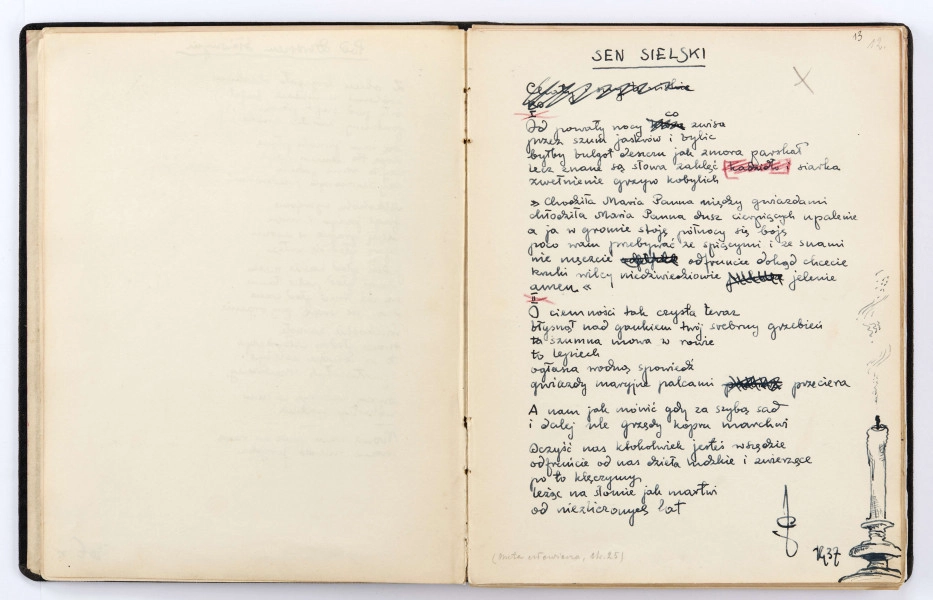 13 12.
SEN SIELSKI
I
Od powały nocy co zwisa
przez szum jaskrów i bylic
byłby bulgot deszczu jak zmora parskał
lecz znane są słowa zaklęć i siarka
zwełnienie grzyw kobylich
» Chodziła Maria Panna między gwiazdami
chłodziła Maria Panna dusz cierpiących upalenie
a ja w gromie stoję północy się boję
poco wam przebywać ze śpiącymi i ze snami
nie męczcie odfruńcie dokąd chcecie
kruki wilcy niedźwiedziowie jelenie
amen «
II
O ciemności tak czysta teraz
błysnął nad gankiem twój srebrny grzebień
ta szumna mowa w rowie
to lejciech
ogłasza wodną spowiedź
gwiazdy maryjne palcami przeciera
A nam jak mówić gdy za szybą sad
i dalej ule grzędy kopru marchwi
Oczyść nas ktokolwiek jesteś wszędzie
odfruńcie od nas dzieła ludzkie i zwierzęce
po to klęczymy
leżąc na słomie jak martwi
od niezliczonych lat
1937